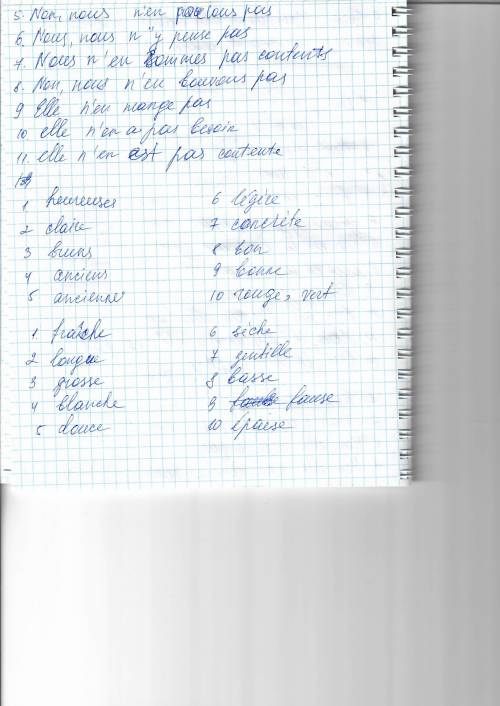 5. Non, nous n'en parlons pas
6. Nous, nous n'y pense pas
7. Nous n'en sommes pas contents
8. Non, nous n'en bouvons pas
9 Elle n'en mange pas
10 elle n'en a pas besoin
11. elle n'en est pas contente
1 heureuses
2 claire
3 bruns
4 anciens
5 anciennes
6 légère
7 concrète
8 bon
9 bonne
10 rouge, vert
1 fraîche
2 longue
3 grosse
4 blanche
5 douce
6 sèche
7 gentille
8 basse
9 fause
10 épaise